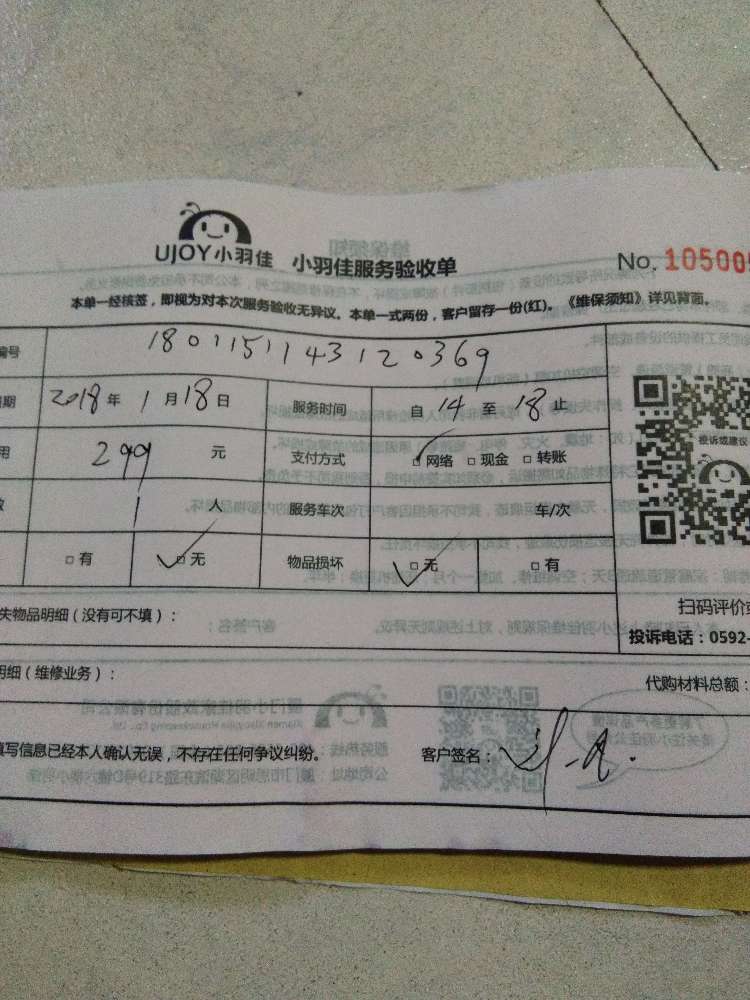 UJOY小羽佳 小羽佳服务验收单 No. 105005
本单一经核签，即视为对本次服务验收无异议。本单一式两份，客户留存一份(红)。《维保须知》详见背面。
编号 1801151143120369
期 2018年1月18日 服务时间 自14至18止
用 299元 支付方式 □网络 □现金 □转账
投诉或建议
数 1人 服务车次 车/次
□有 □无 物品损坏 □无 □有
失物品明细（没有可不填）：
扫码评价或
投诉电话：0592-
明细（维修业务）： 代购材料总额：
填写信息已经本人确认无误，不存在任何争议纠纷。 客户签名：